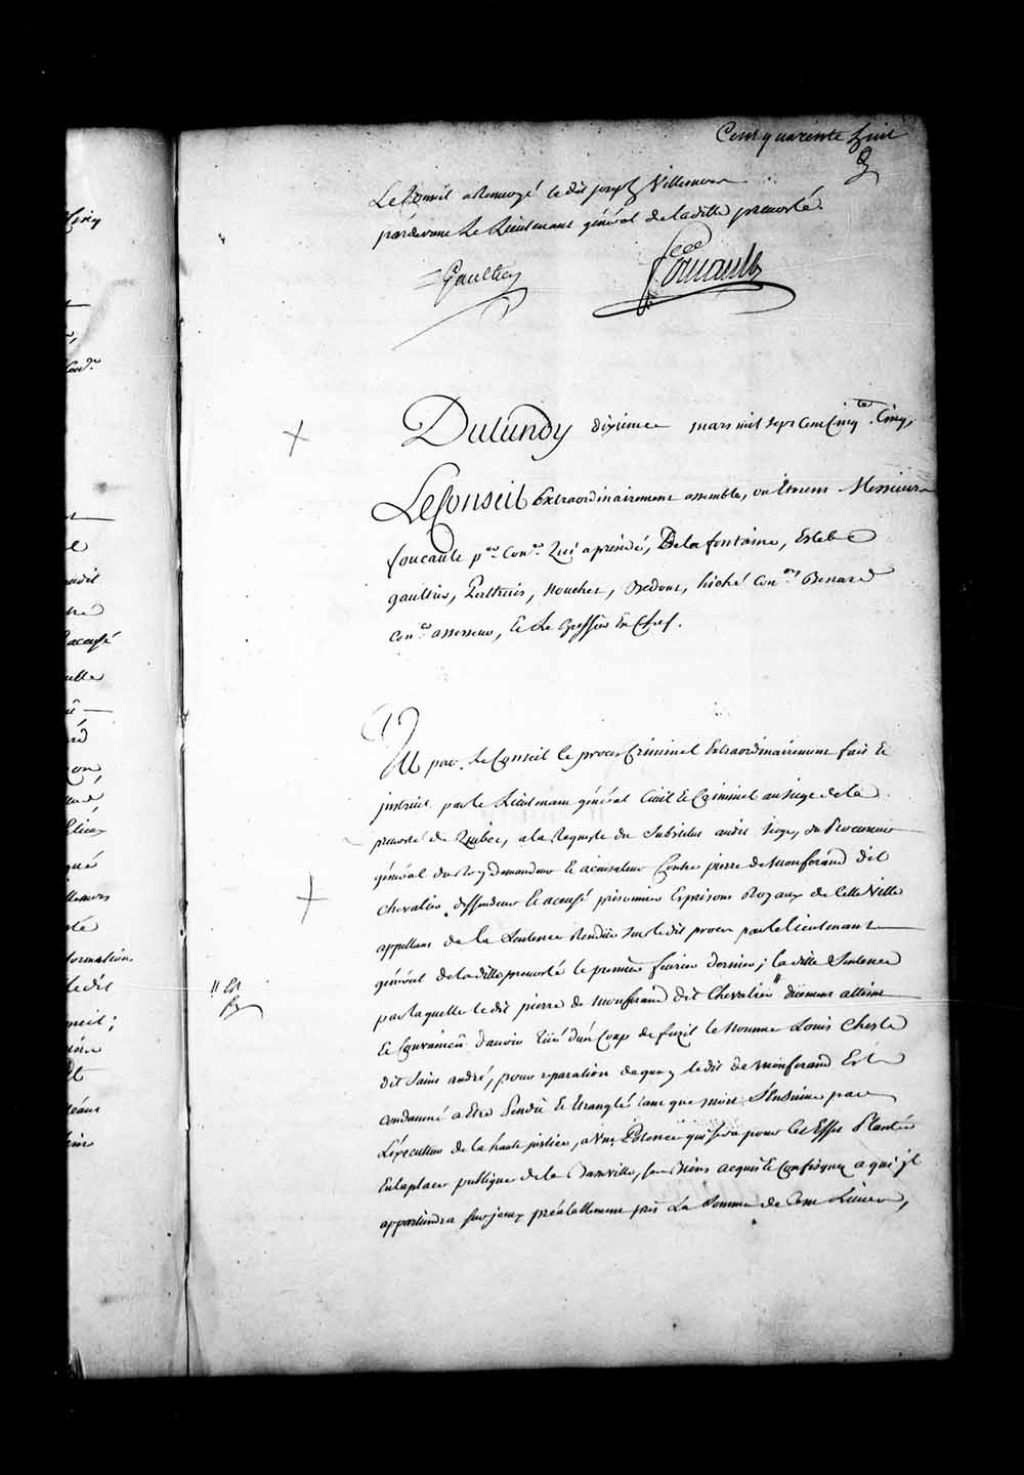 Cent quarante huit
Le Conseil a Renvoyé le dit joseph Villeneuve
pardevant Le Lieutenant général de ladite prevosté.
Gaultier
foucault
Du Lundy dixieme mars mil sept Cent Cinq.te Cinq,
Le Conseil Extraordinairement assemblé, ou Etoient Messieurs
foucault p.er Con.er Qui a présidé, De la fontaine, Estebe
gaultier, Perthuis, Nouchet, Bedout, hiché Con.ers Benard
Con.er assesseur, Et Le Greffier En Chef.
Vu par Le Conseil le procès Criminel Extraordinairement fait Et
instruit par le Lieutenant général Civil Et Criminel au siege de la
prevosté de Quebec, a la Requeste du Substitut audit siege, du Procureur
général du Roy demandeur Et accusateur Contre pierre de Monferand dit
Chevalier deffendeur Et accusé prisonnier Es prisons Royaux de Cette Ville
appellant de la Sentence Rendüe sur le dit procès par le lieutenant
général de ladite prevosté le premier fevrier dernier; la dite Sentence
par laquelle le dit pierre de Monferand dit Chevalier " düement atteint
Et Convaincü d'avoir tüé d'un Coup de fuzil le Nommé Louis
dit Saint andré, pour reparation de quoy le dit de Monferand Est
Condamné a Etre Pendü Et Etranglé tant que mort S'Ensuive par
L'éxécuteur de la haute justice, a Une Potence qui sera pour Cet Effet Plantée
En la place publique de la Basseville, ses Biens acquis Et Confisquez a qui jl
appartiendra sur jceux préalablement pris La Somme de Cent Livres,
" Est